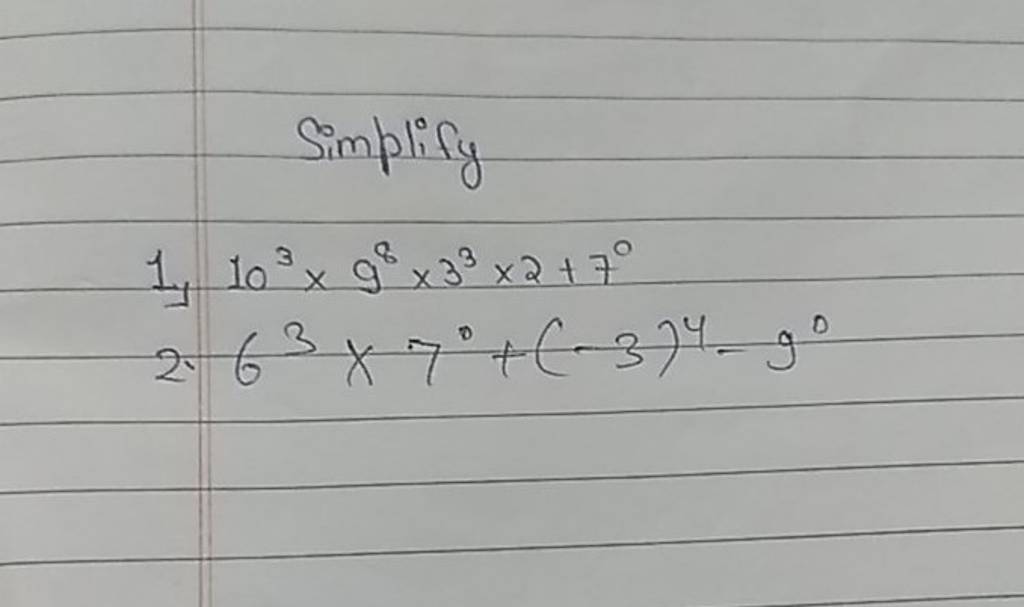 Simplify
1, 10³ × 9⁸ × 3³ × 2 + 7⁰
2. 6³ × 7⁰ + (-3)⁴ - 9⁰